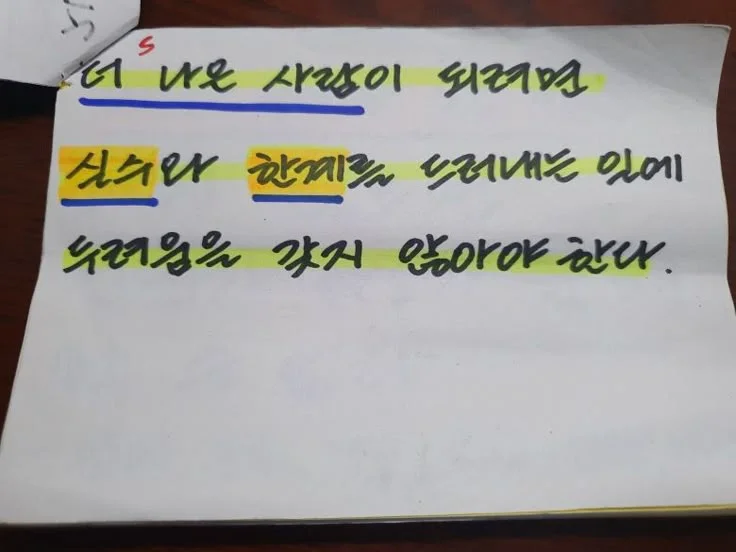 s
더 나은 사람이 되려면
실수와 한계를 드러내는 일에
두려움을 갖지 않아야 한다.